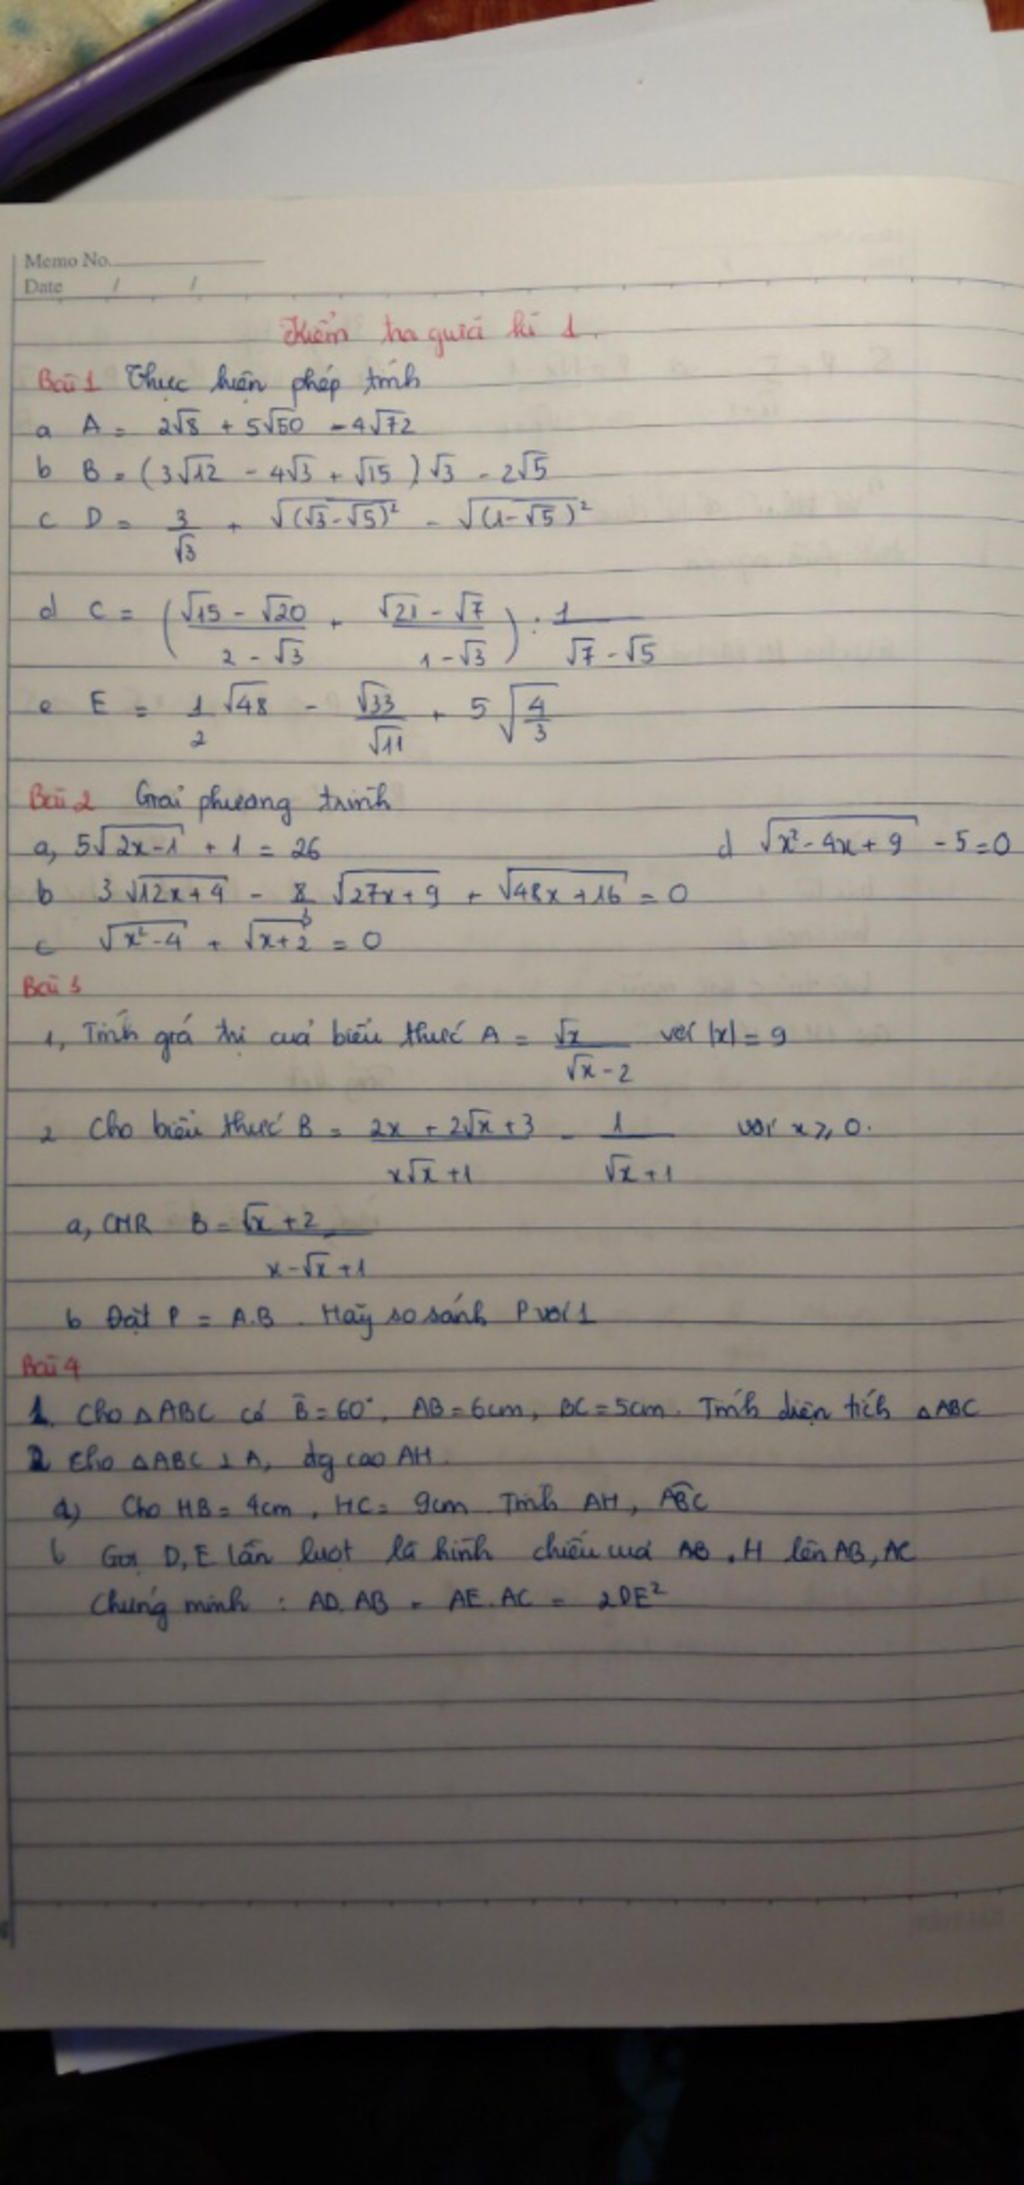 Memo No.
Date / /
Kiểm tra giữa kì 1.
Bài 1 Thực hiện phép tính
a A = 2√8 + 5√50 - 4√72
b B = (3√12 - 4√3 + √15)√3 - 2√5
c D = 3/√3 + √((√3-√5)²) - √((1-√5)²)
d C = ((√15 - √20)/(2 - √3) + (√21 - √7)/(1 - √3)) : 1/(√7 - √5)
e E = 1/2 √48 - √33/√11 + 5√(4/3)
Bài 2 Giải phương trình
a, 5√(2x-1) + 1 = 26 d √(x² - 4x + 9) - 5 = 0
b 3√(12x+4) - 8/3 √(27x+9) + √(48x+16) = 0
c √(x²-4) + √(x+2) = 0
Bài 3
1, Tính giá trị của biểu thức A = √x/(√x-2) với |x| = 9
2 Cho biểu thức B = (2x + 2√x + 3)/(x√x + 1) - 1/(√x + 1) với x ⩾ 0.
a, CMR B = (√x + 2)/(x - √x + 1)
b Đặt P = A.B. Hãy so sánh P với 1
Bài 4
1. Cho ΔABC có B̂ = 60°, AB = 6cm, BC = 5cm. Tính diện tích ΔABC
2 Cho ΔABC ⊥ A, đg cao AH.
a) Cho HB = 4cm, HC = 9cm Tính AH, ABC
b Gọi D, E lần lượt là hình chiếu của AB, H lên AB, AC
Chứng minh : AD.AB = AE.AC = 2DE²